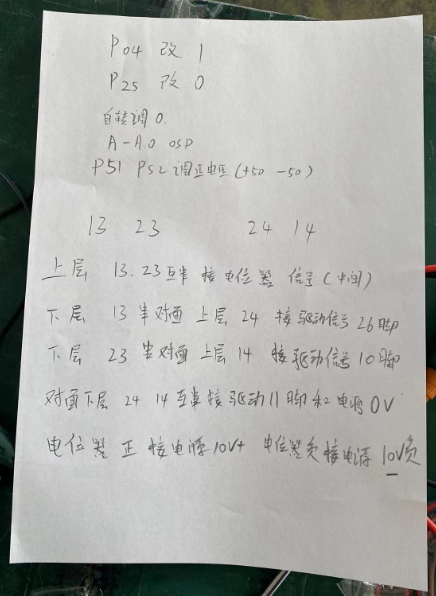 P04 改 1
P25 改 0
自转调0.
A-A0 OSP
P51 P52调正电压(+50 -50)
13 23 24 14
上层 13.23互串 接电位器 信号(中间)
下层 13 串对面 上层 24 接驱动信号 26脚
下层 23 串对面 上层 14 接驱动信号 10脚
对面下层 24 14互串接驱动11脚和电源0V
电位器 正 接电源10V+ 电位器负接电源 10V负